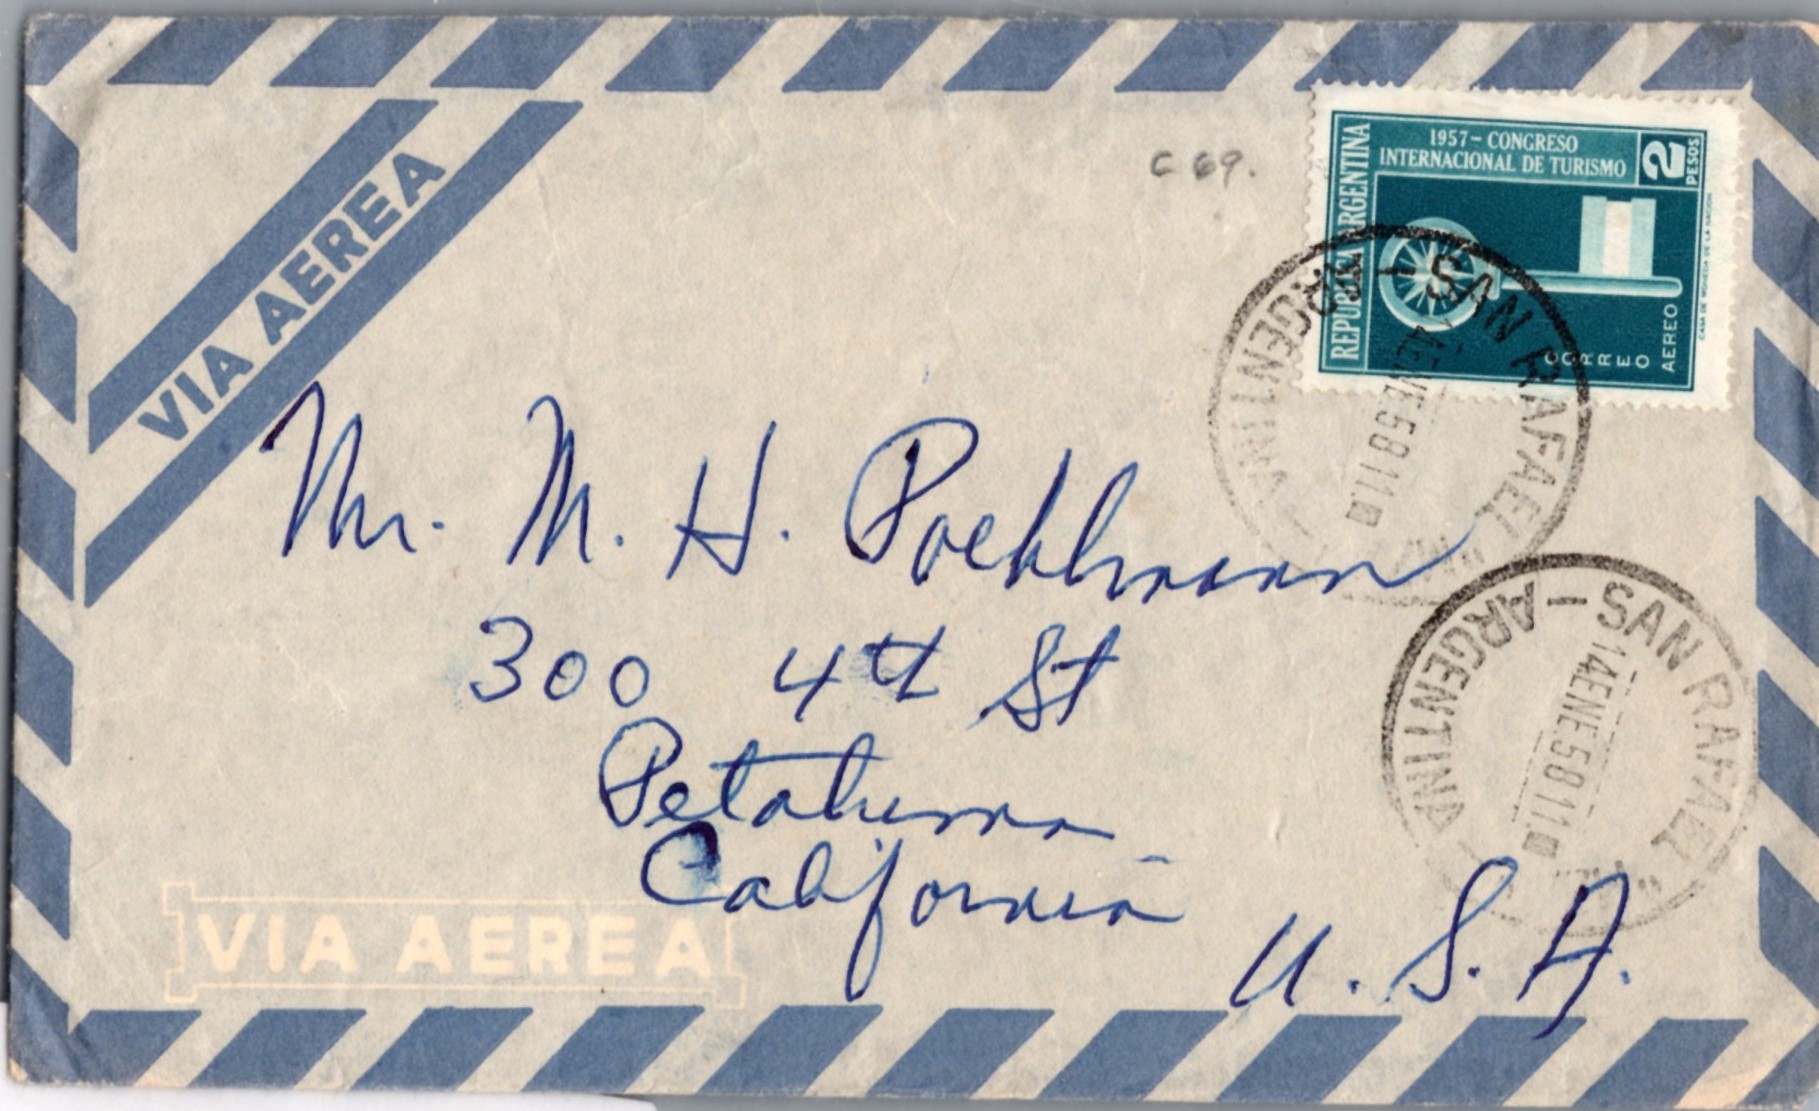 VIA AEREA
C 69.
1957 - CONGRESO
INTERNACIONAL DE TURISMO
2
PESOS
REPUBLICA ARGENTINA
CORREO
AEREO
CASA DE MONEDA DE LA NACION
SAN RAFAEL
ARGENTINA
ENE 58 11
Mr. M. H. Poehlmann
300 4th St
Petaluma
California
U.S.A.
SAN RAFAEL
ARGENTINA
14 ENE 58 11
VIA AEREA